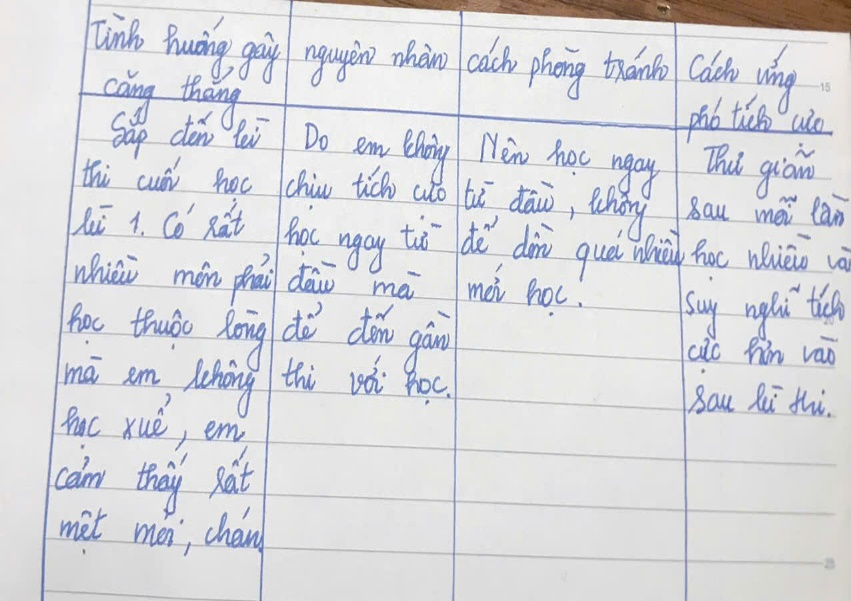 Tình huống gây
căng thẳng
nguyên nhân
cách phòng tránh
Cách ứng
phó tích cực
Sắp đến lì
thi cuối học
lì 1. Có rất
nhiều môn phải
học thuộc lòng
mà em không
học xuể, em
cảm thấy rất
mệt mỏi, chán
Do em không
chịu tích cực
học ngay từ
đầu mà
để đến gần
thi với học.
Nên học ngay
từ đầu, không
để dồn quá nhiều
mới học.
Thư giãn
sau mỗi lần
học nhiều và
suy nghĩ tích
cực hơn vào
sau lì thi.
15
25